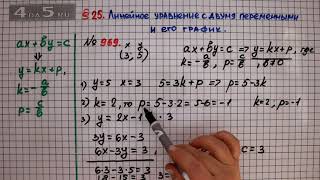 4 по 5.ru
§25. Линейное уравнение с двумя переменными
и его график.
ax+by=c
⇓
y=kx+p,
k=-a/b
p=c/b
№ 969. x y (3; 5)
ax+by=c ⇒ y=kx+p, где
k=-a/b, p=c/b, b≠0
1) y=5 x=3 5=3k+p ⇒ p=5-3k
2) k=2, то p=5-3·2=5-6=-1 k=2, p=-1
3) y=2x-1 ·3
3y=6x-3
6x-3y=3
6·3-3·5=3
18-15=3